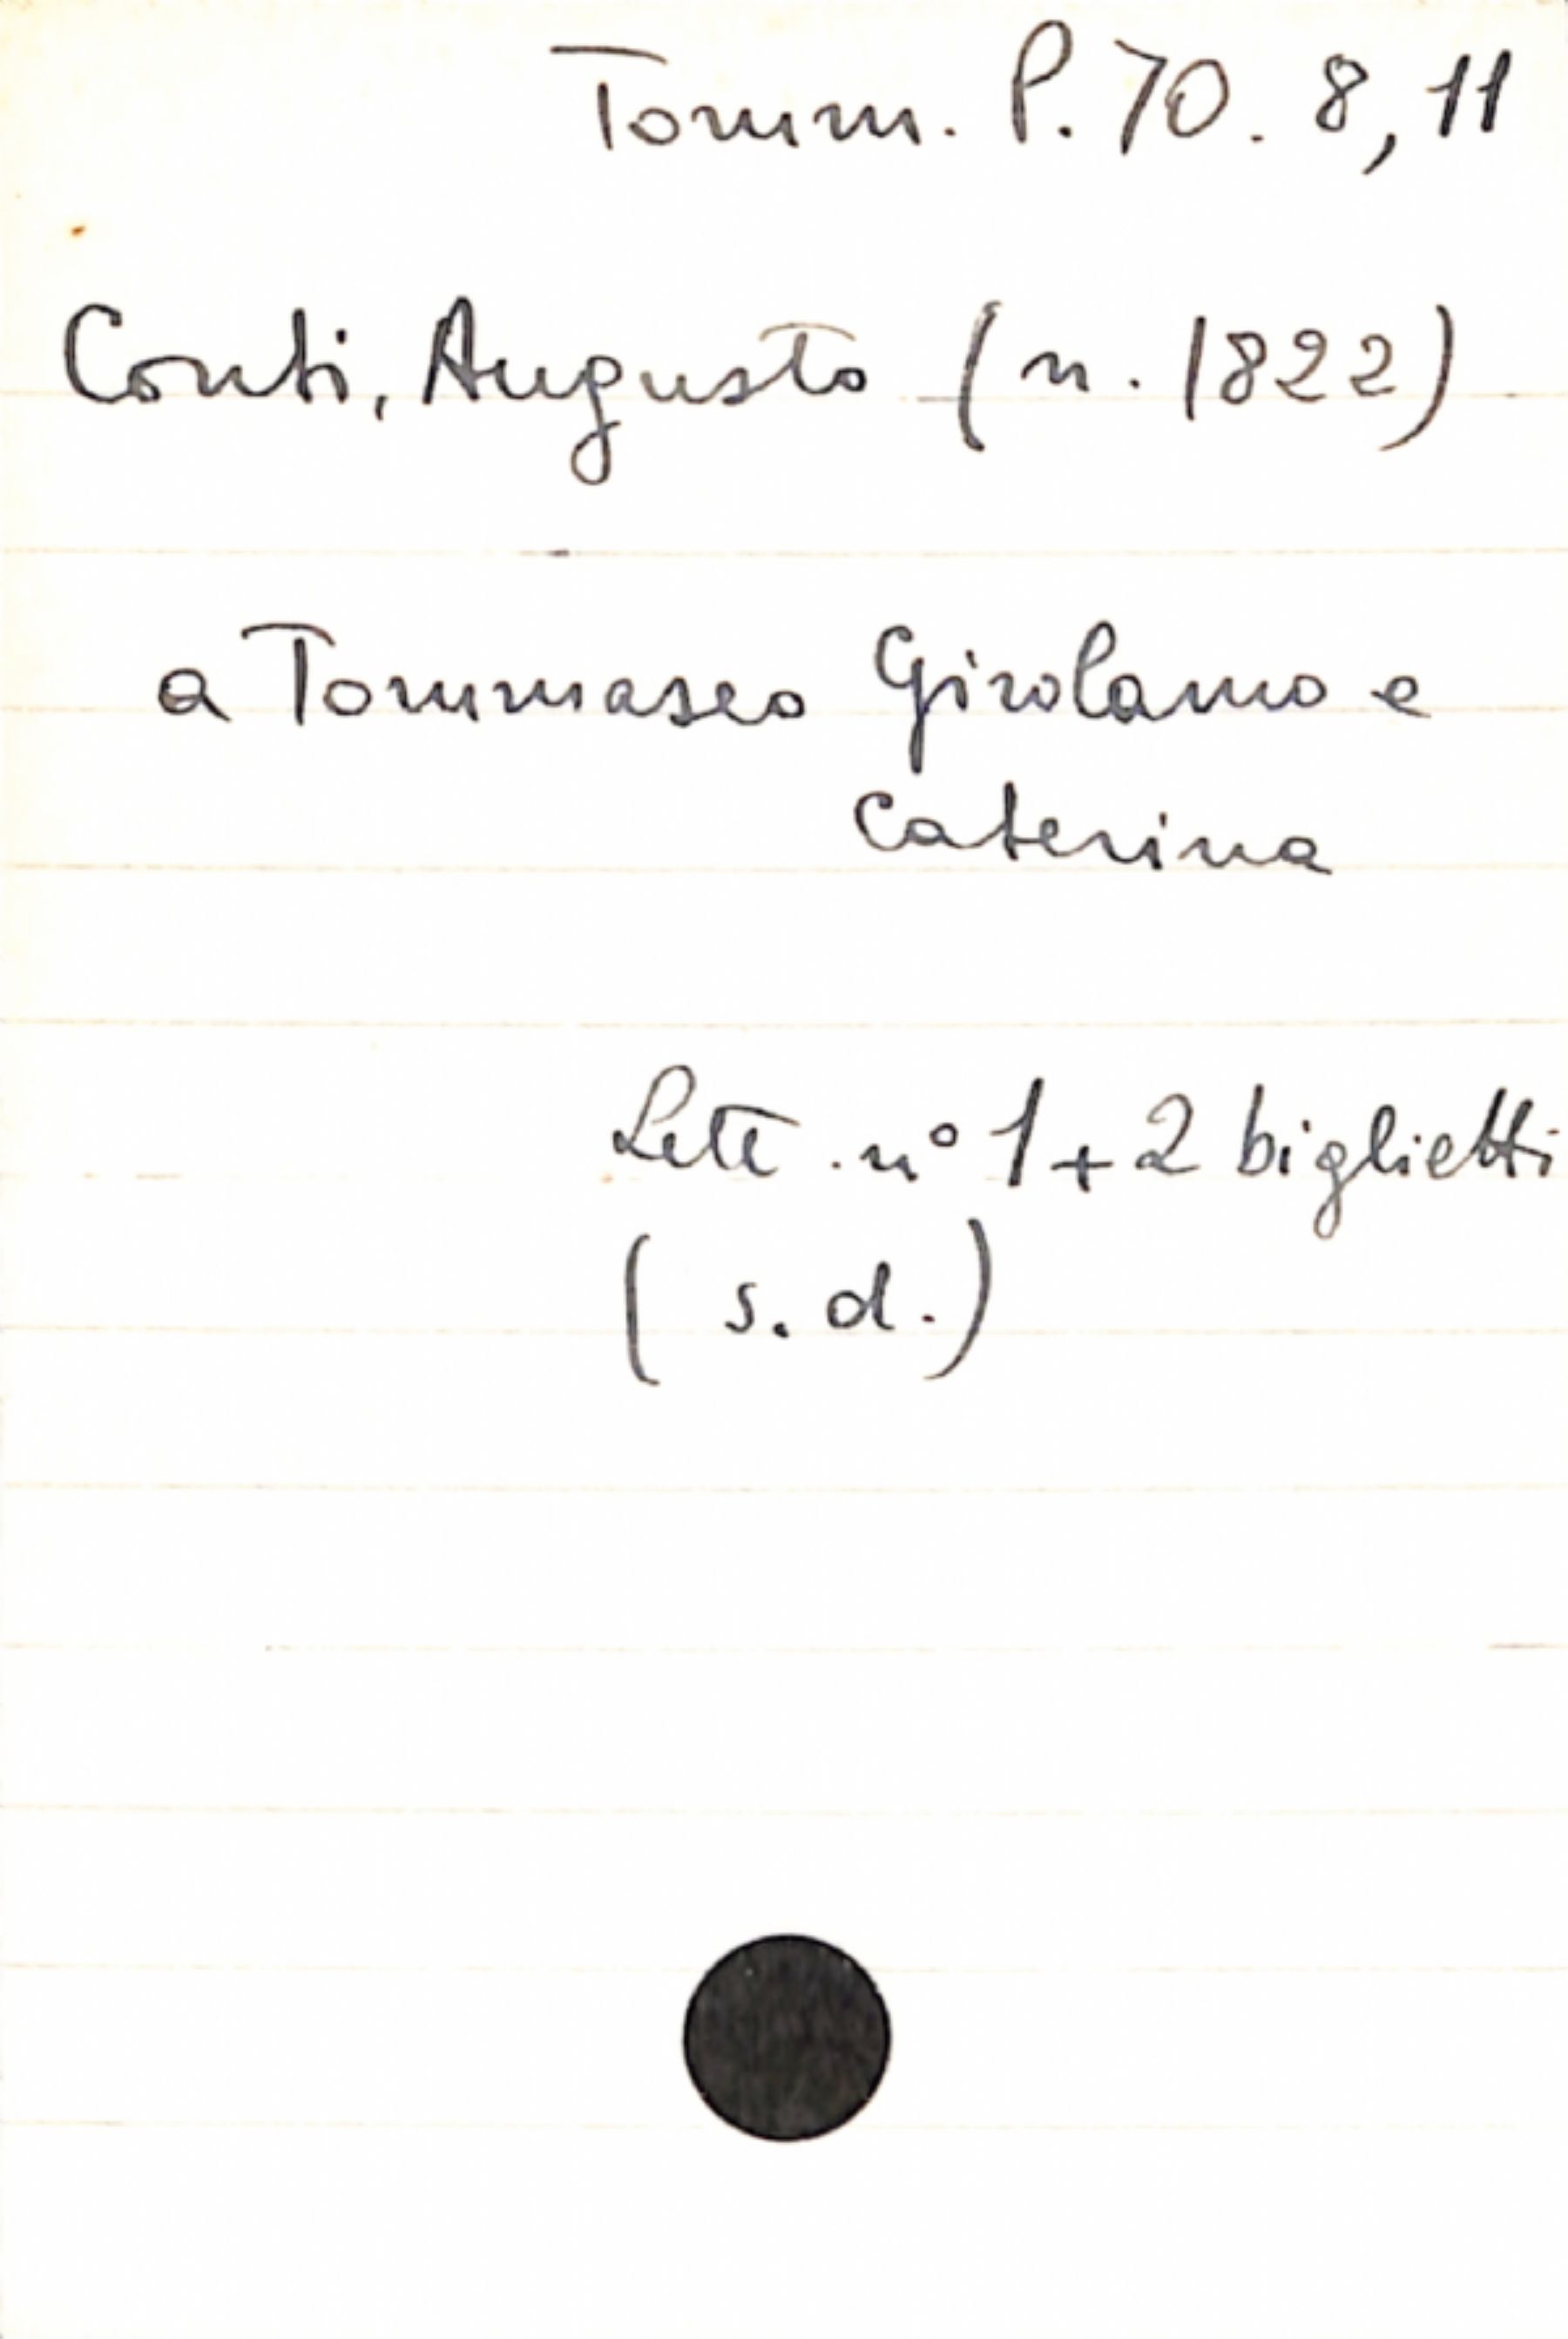 Tomm. P. 70. 8, 11
Conti, Augusto (n. 1822)
a Tommaseo Girolamo e
Caterina
Lett. n° 1 + 2 biglietti
(s. d.)